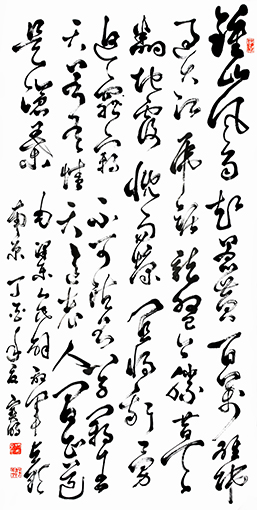 鍾山风雨起苍黄百万雄师
过大江虎踞龙盘今胜昔天
翻地覆慨而慷宜将剩勇
追穷寇不可沽名学霸王
天若有情天亦老人间正道
是沧桑 人民解放军占领
南京 丁酉年夏